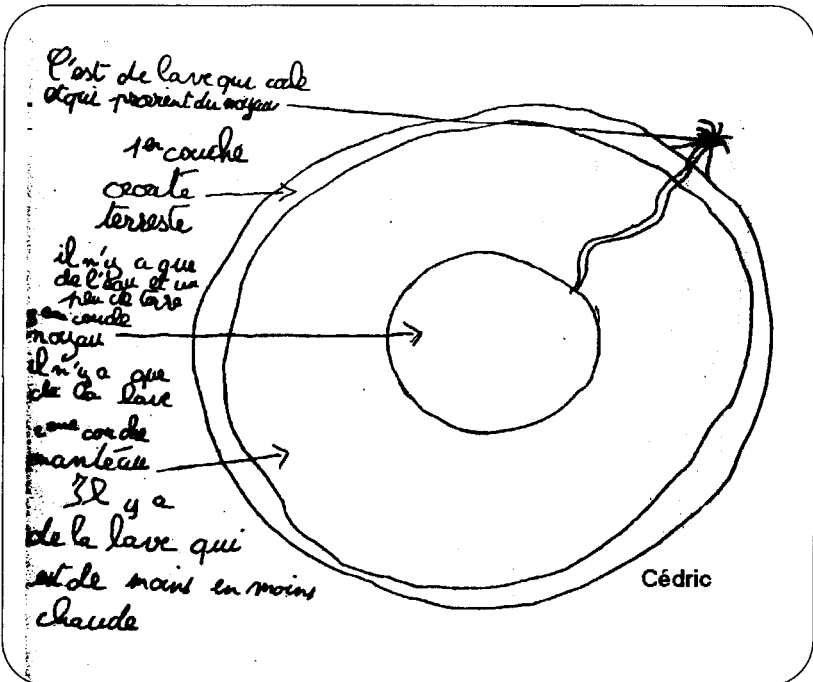 C'est de lave qui coule
et qui provient du noyau
1er couche
croute
terreste
il n'y a que
de l'eau et un
peu de terre
3eme couche
noyau
il n'y a que
de la lave
2eme couche
manteau
Il y a
de la lave qui
est de moins en moins
chaude
Cédric